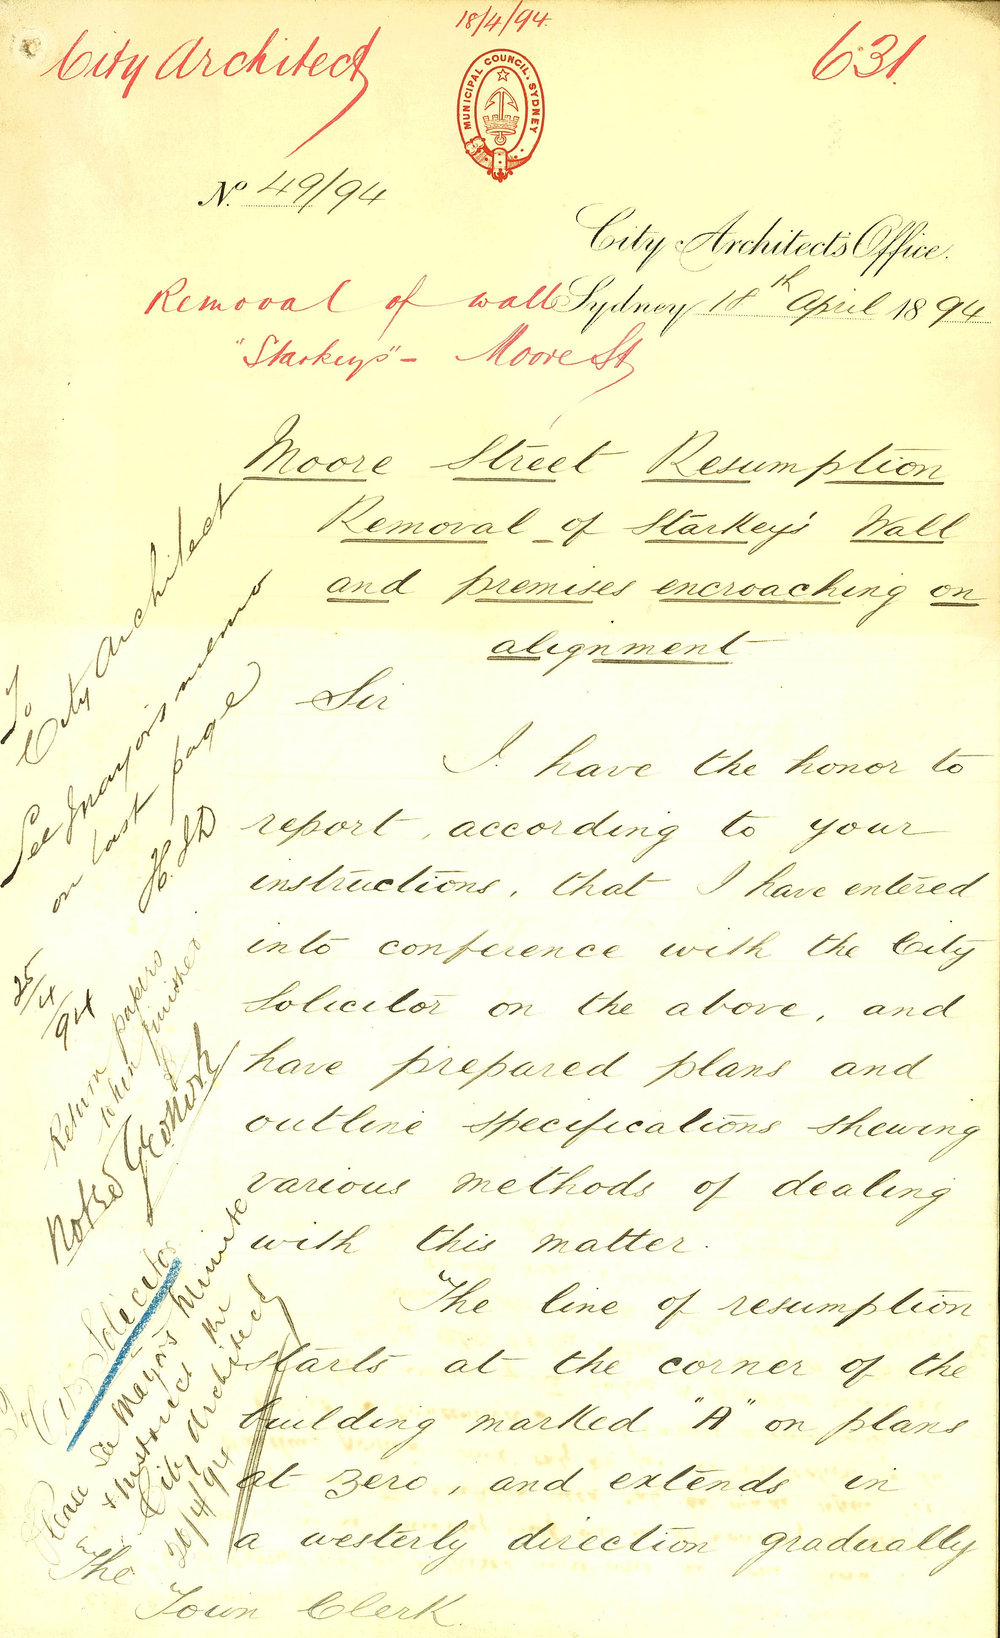 18/4/94
City Architect
631.
MUNICIPAL COUNCIL. SYDNEY
No. 49/94
City Architect's Office.
Sydney 18th April 1894
Removal of wall
"Starkeys" - Moore St
Moore Street Resumption
Removal of Starkey's Wall
and premises encroaching on
alignment
Sir
I have the honor to
report, according to your
instructions, that I have entered
into conference with the City
Solicitor on the above, and
have prepared plans and
outline specifications shewing
various methods of dealing
with this matter.
The line of resumption
starts at the corner of the
building marked "A" on plans
at zero, and extends in
a westerly direction gradually
The
Town Clerk
To
City Architect
See Mayor's memo
on last page
25/4/94
Return papers
when finished
Noted
City Solicitor
Please see Mayor's Minute
& instruct the
City Architect
20/4/94